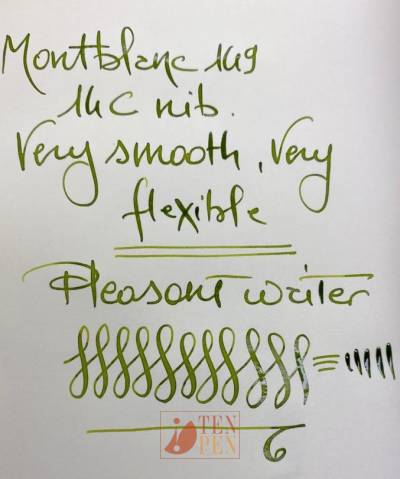 Montblanc 149
14C nib.
Very smooth, Very
flexible
Pleasant writer
TEN
PEN